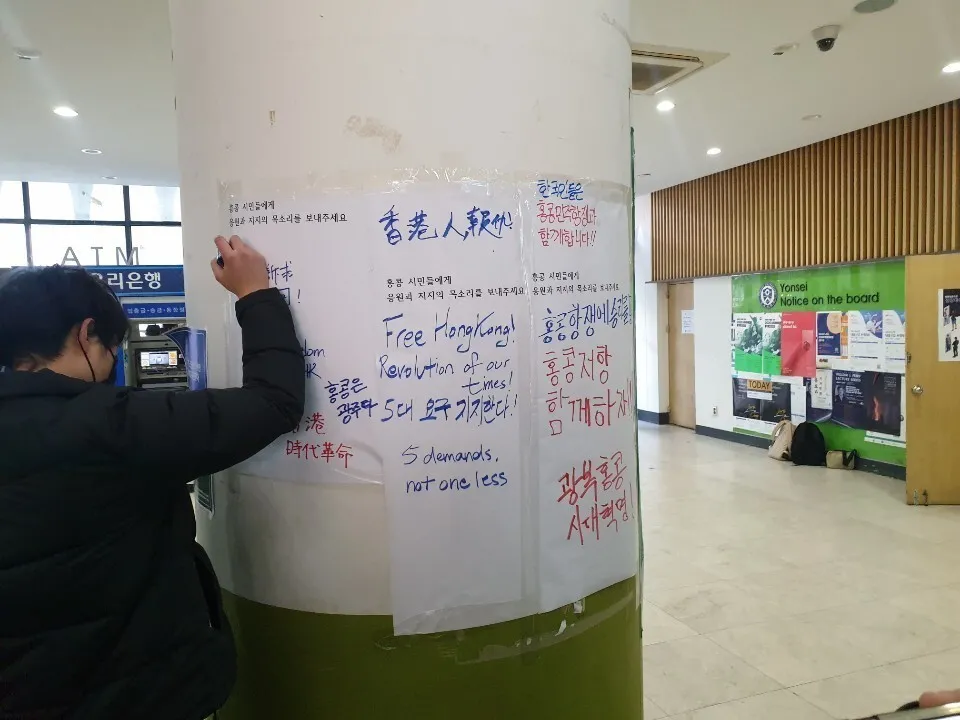 홍콩 시민들에게
응원과 지지의 목소리를 보내주세요
홍콩은
광주다
時代革命
香港人,報仇!
홍콩 시민들에게
응원과 지지의 목소리를 보내주세요
Free HongKong!
Revolution of our
times!
5대 요구 지지한다!
5 demands,
not one less
한국인들은
홍콩민주항쟁과
함께합니다!!
홍콩 시민들에게
응원과 지지의 목소리를 보내주세요
홍콩항쟁에 승리를
홍콩저항
함께하자!
광복홍콩
시대혁명!
ATM
리은행
Yonsei
Notice on the board
TODAY